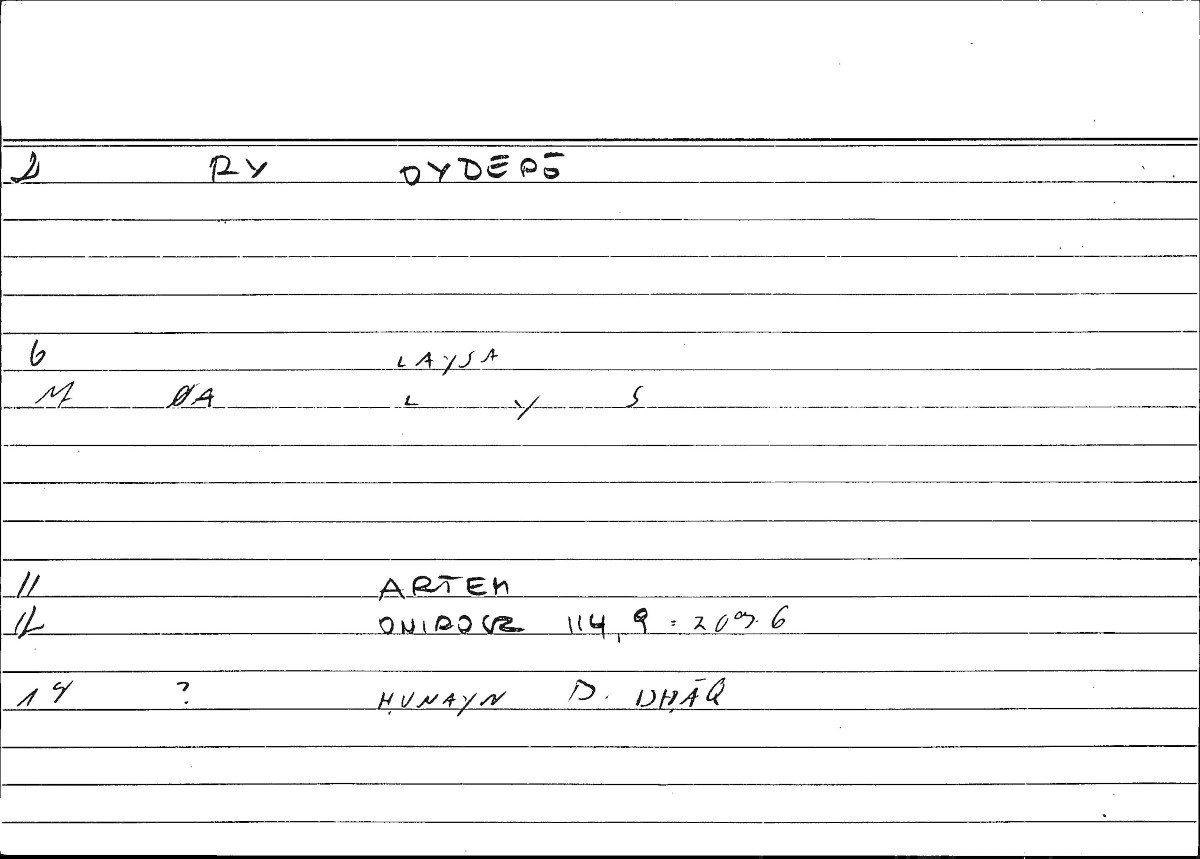 2 RY OYDEPŌ
6 LAYSA
M ØA L Y S
11 ARTEM
12 ONIROCR 114,9 = 209.6
14 ? ḤUNAYN B. ISḤĀQ